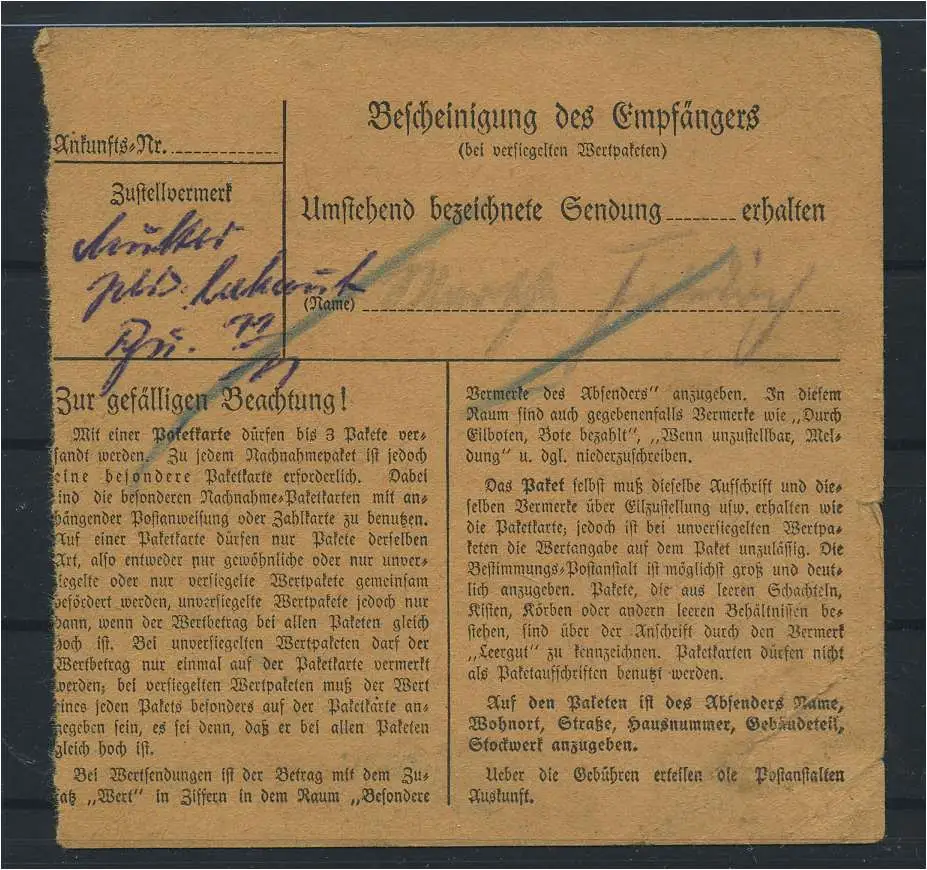 Ankunfts-Nr.
Zustellvermerk
Bescheinigung des Empfängers
(bei versiegelten Wertpaketen)
Umstehend bezeichnete Sendung erhalten
(Name)
Zur gefälligen Beachtung!
Mit einer Paketkarte dürfen bis 3 Pakete ver-
sandt werden. Zu jedem Nachnahmepaket ist jedoch
eine besondere Paketkarte erforderlich. Dabei
ind die besonderen Nachnahme-Paketkarten mit an-
hängender Postanweisung oder Zahlkarte zu benutzen.
Auf einer Paketkarte dürfen nur Pakete derselben
Art, also entweder nur gewöhnliche oder nur unver-
siegelte oder nur versiegelte Wertpakete gemeinsam
befördert werden, unversiegelte Wertpakete jedoch nur
dann, wenn der Wertbetrag bei allen Paketen gleich
hoch ist. Bei unversiegelten Wertpaketen darf der
Wertbetrag nur einmal auf der Paketkarte vermerkt
werden; bei versiegelten Wertpaketen muß der Wert
eines jeden Pakets besonders auf der Paketkarte an-
gegeben sein, es sei denn, daß er bei allen Paketen
gleich hoch ist.
Bei Wertsendungen ist der Betrag mit dem Zu-
satz „Wert" in Ziffern in dem Raum „Besondere
Vermerke des Absenders" anzugeben. In diesem
Raum sind auch gegebenenfalls Vermerke wie „Durch
Eilboten, Bote bezahlt", „Wenn unzustellbar, Mel-
dung" u. dgl. niederzuschreiben.
Das Paket selbst muß dieselbe Aufschrift und die-
selben Vermerke über Eilzustellung usw. erhalten wie
die Paketkarte; jedoch ist bei unversiegelten Wertpa-
keten die Wertangabe auf dem Paket unzulässig. Die
Bestimmungs-Postanstalt ist möglichst groß und deut-
lich anzugeben. Pakete, die aus leeren Schachteln,
Kisten, Körben oder andern leeren Behältnissen be-
stehen, sind über der Anschrift durch den Vermerk
„Leergut" zu kennzeichnen. Paketkarten dürfen nicht
als Paketaufschriften benutzt werden.
Auf den Paketen ist des Absenders Name,
Wohnort, Straße, Hausnummer, Gebäudeteil,
Stockwerk anzugeben.
Ueber die Gebühren erteilen die Postanstalten
Auskunft.